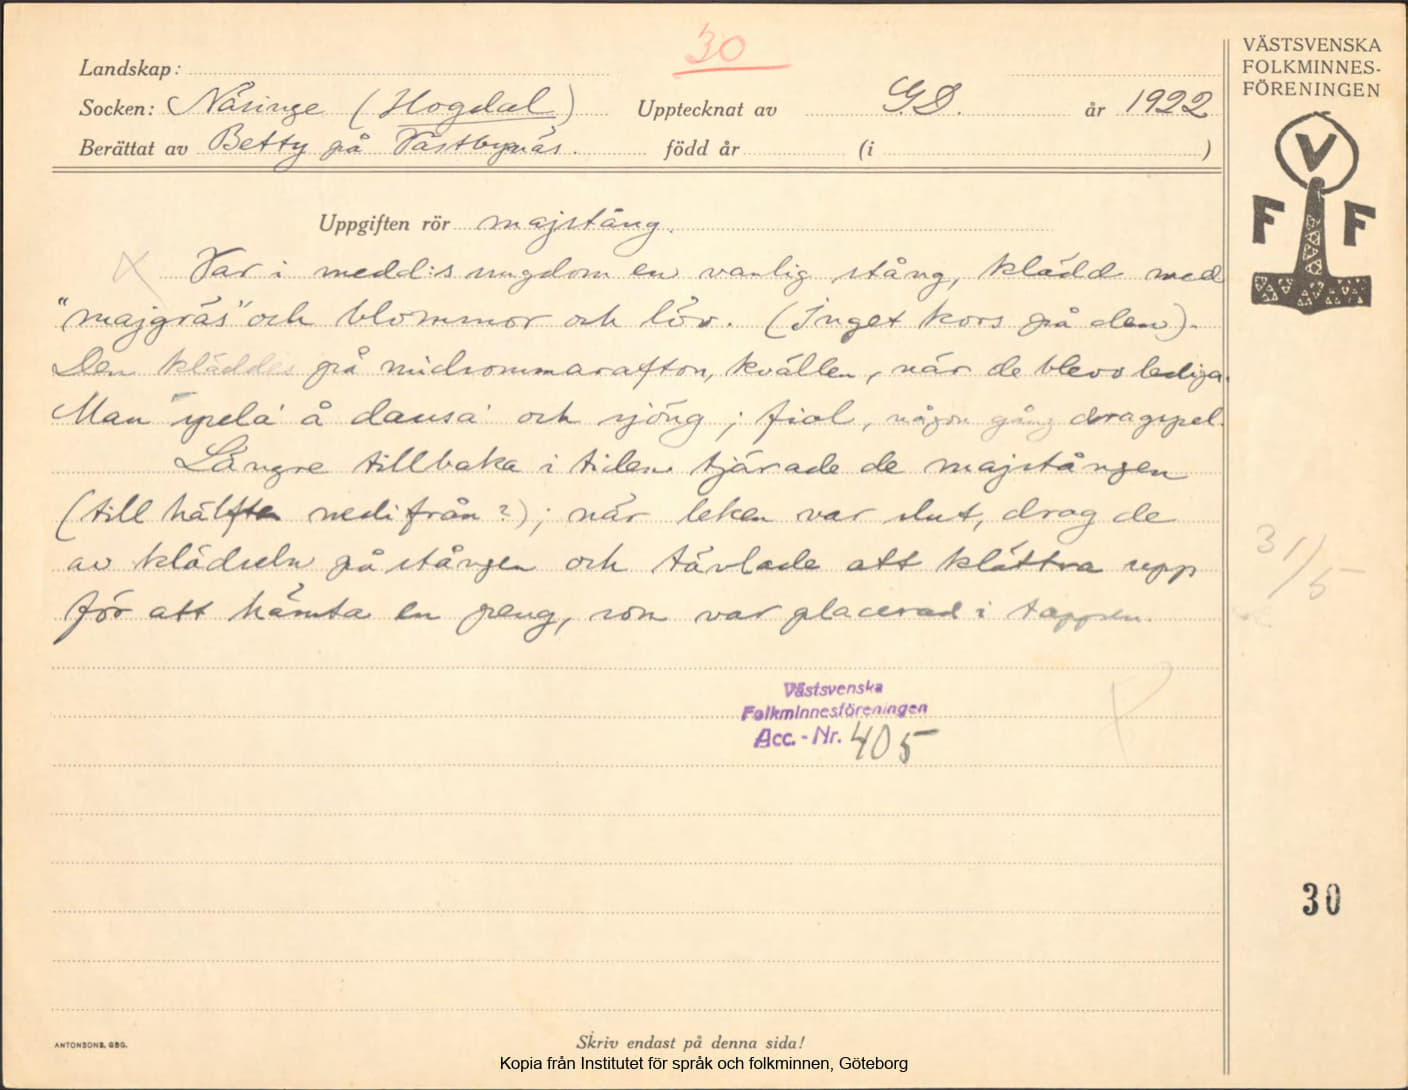 30
VÄSTSVENSKA
FOLKMINNES-
FÖRENINGEN
Landskap:
Socken: Näsinge (Hogdal) Upptecknat av G.D. år 1922
Berättat av Betty på Västbynäs. född år (i )
V
F F
Uppgiften rör majstång.
Var i medd:s ungdom en vanlig stång, klädd med
"majgräs" och blommor och löv. (Inget kors på den).
Den kläddes på midsommarafton, kvällen, när de blevo lediga.
Man spela å dansa och sjöng; fiol, någon gång dragspel.
Längre tillbaka i tiden tjärade de majstången
(till hälften nedifrån?); när leken var slut, drog de
av klädseln på stången och tävlade att klättra upp
för att hämta en peng, som var placerad i toppen.
31/5
Västsvenska
Folkminnesföreningen
Acc.-Nr. 405
30
ANTONSONS, GBG.
Skriv endast på denna sida!
Kopia från Institutet för språk och folkminnen, Göteborg